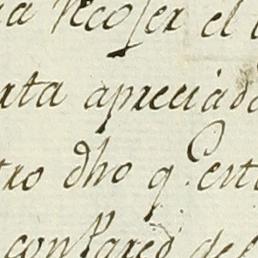 a Recoser el
rta apreciad
tro dho q. esta
compared del